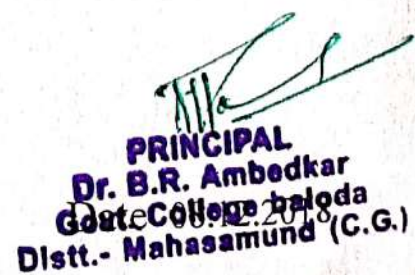 PRINCIPAL
Dr. B.R. Ambedkar
Govt. College baloda
Date 08.12.2018
Distt.- Mahasamund (C.G.)